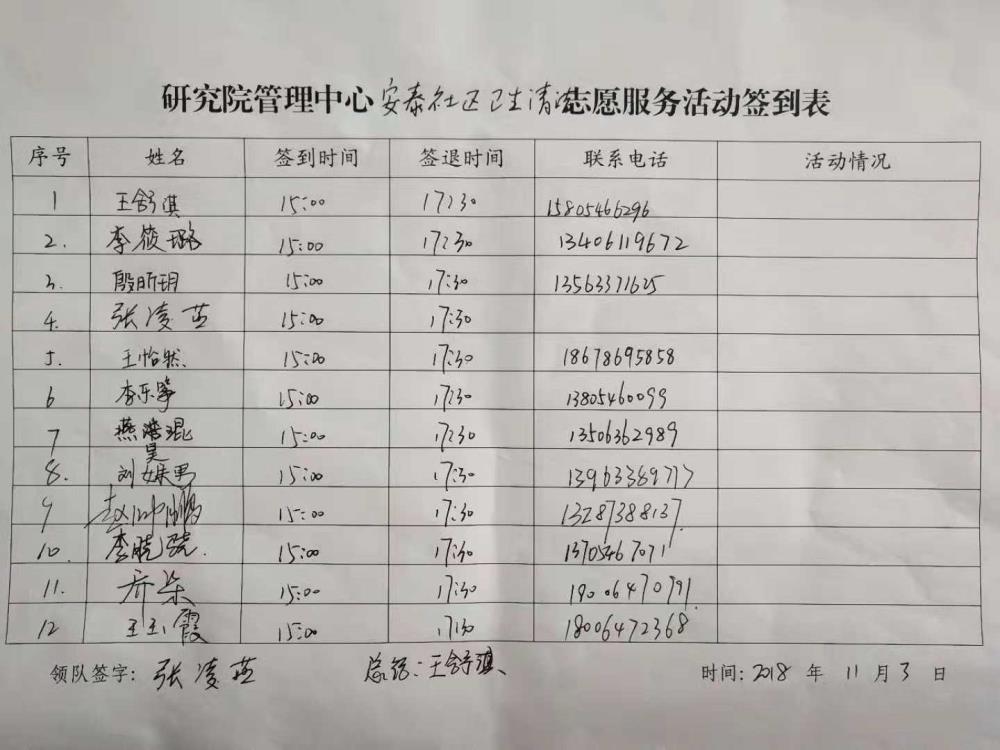 研究院管理中心安泰社区卫生清洁志愿服务活动签到表
序号 姓名 签到时间 签退时间 联系电话 活动情况
1 王舒淇 15:00 17:30 15805466296
2. 李筱璐 15:00 17:30 13406119672
3. 殷昕玥 15:00 17:30 13563371625
4. 张凌燕 15:00 17:30
5. 王怡然 15:00 17:30 18678695858
6 李乐筝 15:00 17:30 13805460099
7 燕浩琨 昊 15:00 17:30 13506362989
8. 刘姝男 15:00 17:30 13963389777
9 赵 鹏 15:00 17:30 13287388137
10. 李晓 15:00 17:30 13705467071
11. 乔 15:00 17:30 18006470791
12 王玉霞 15:00 17:30 18006472368
领队签字: 张凌燕 总结: 王舒淇 时间: 2018 年 11 月 3 日